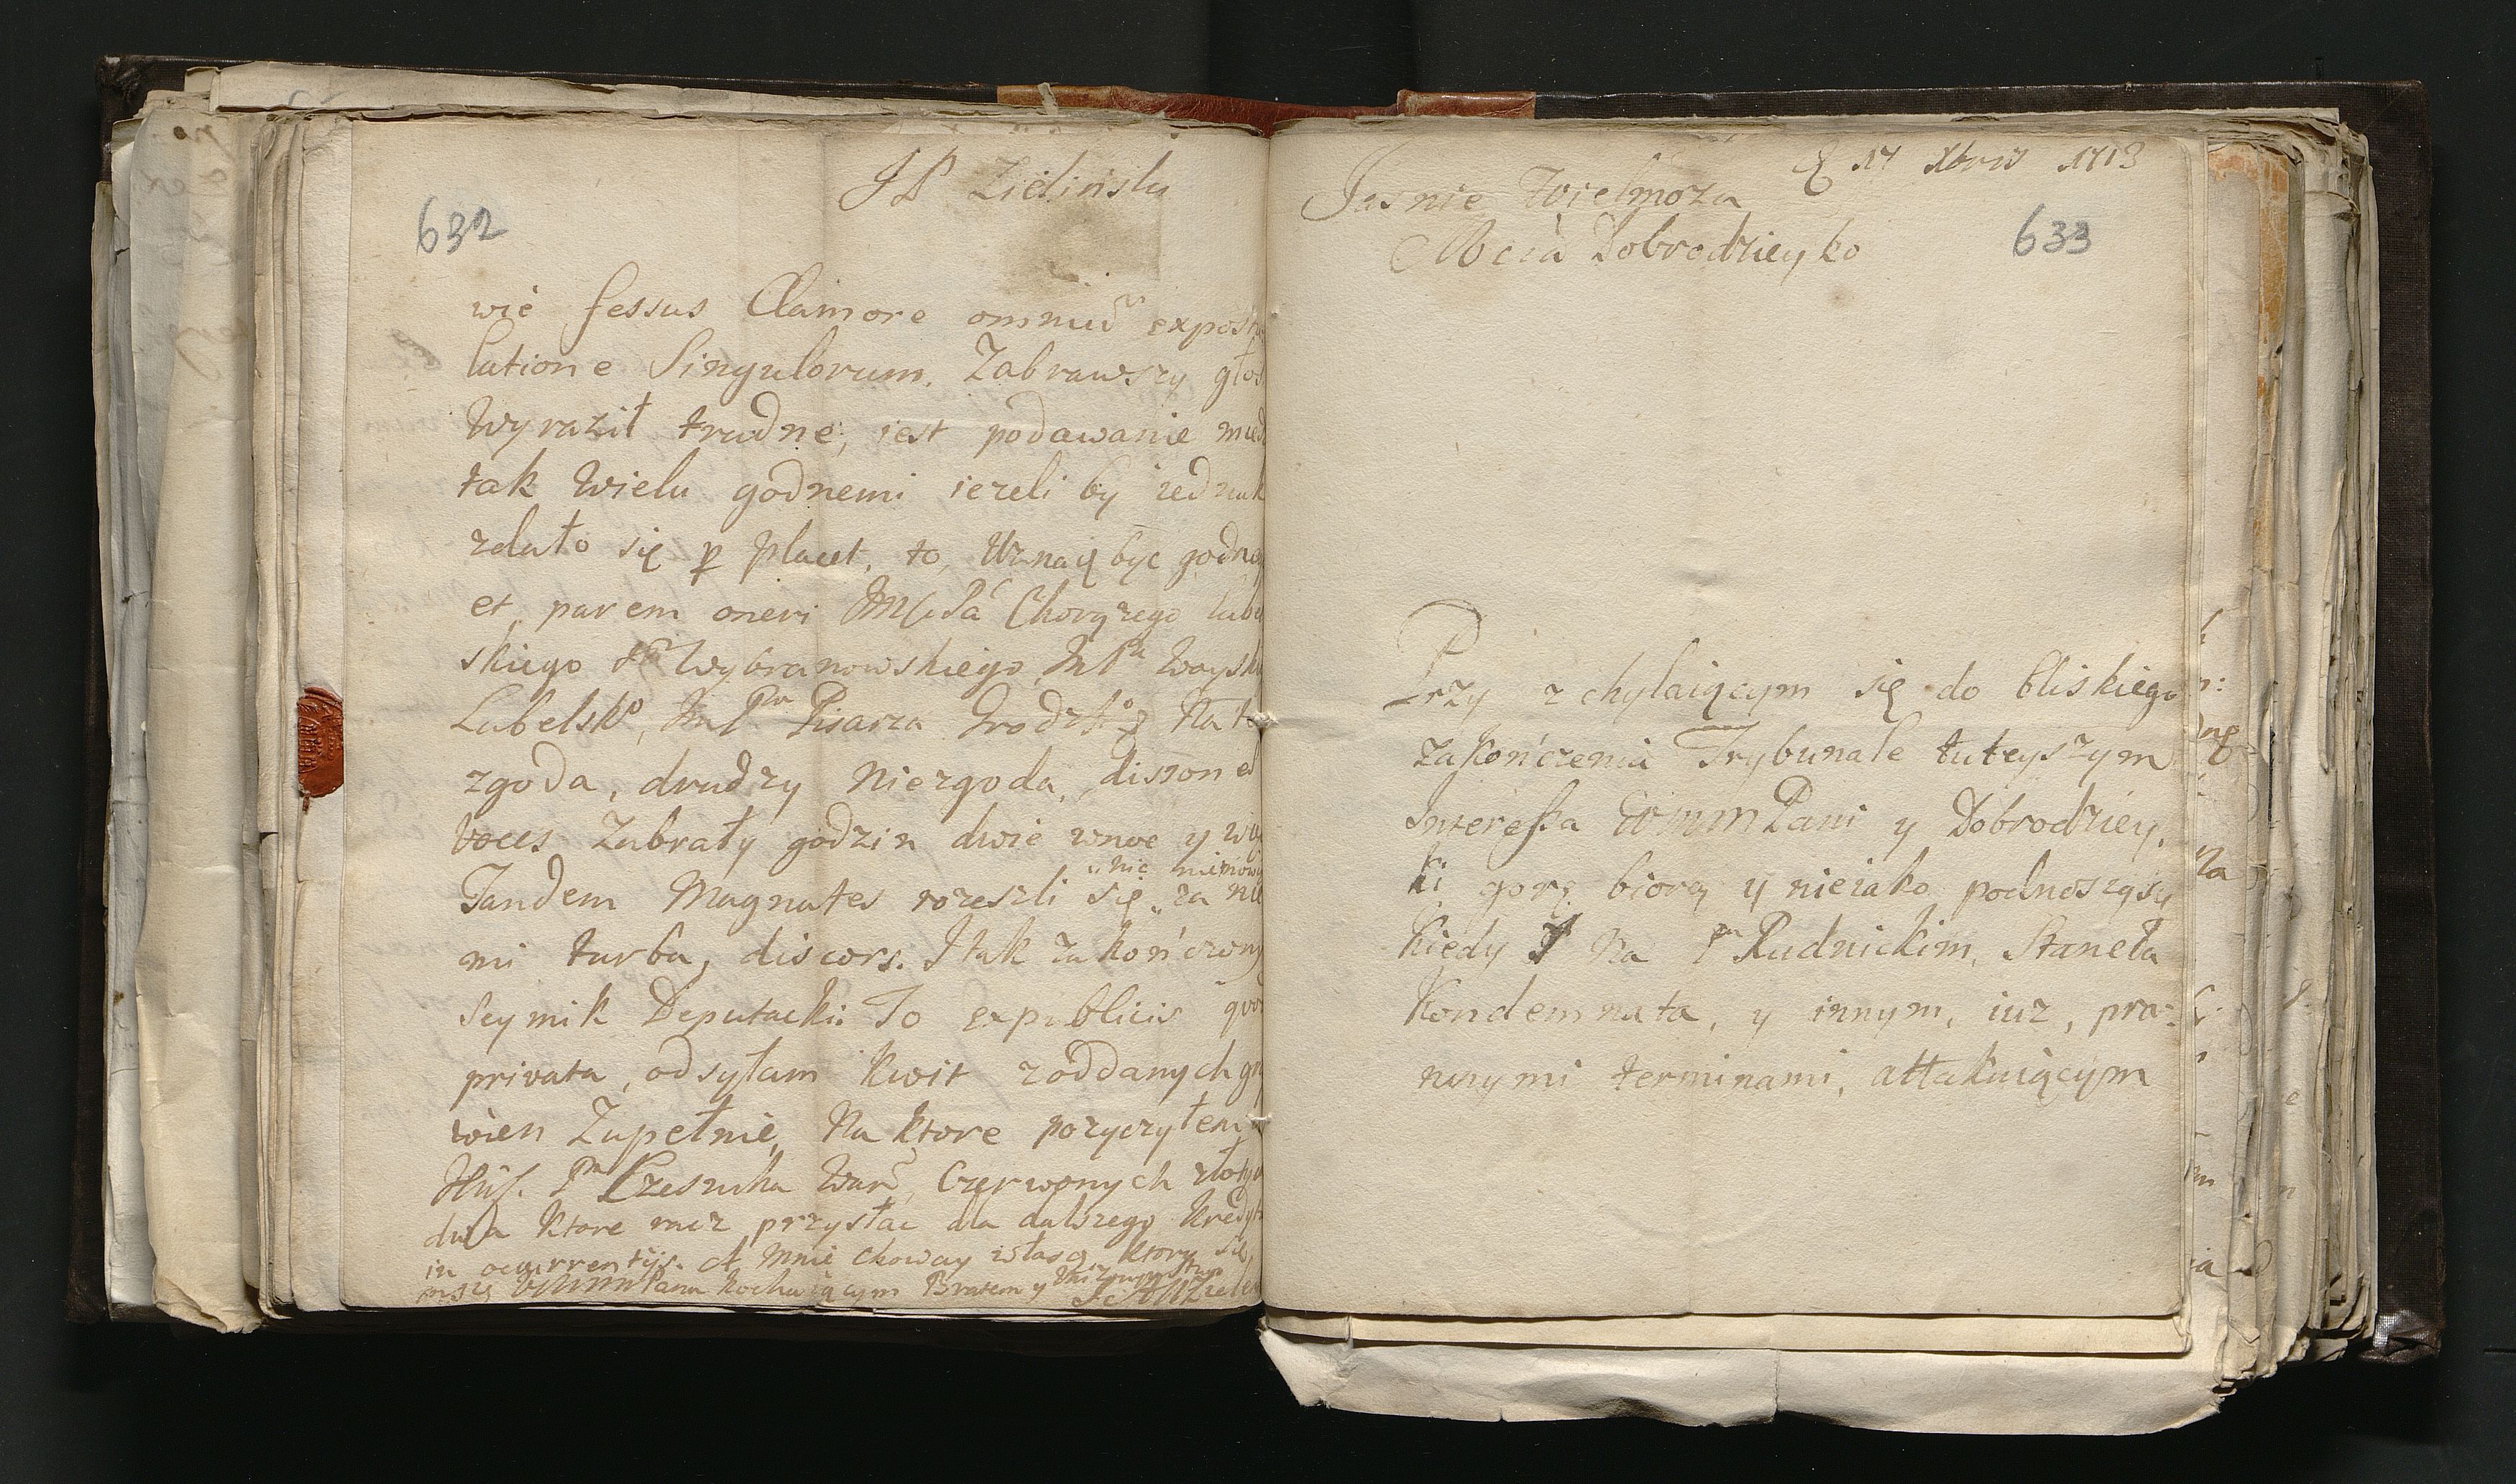 JP Zielinski
632
wie fessus Clamore omniu expostu
latione Singulorum. Zabrawszy głos
Wyraził trudne, iest podawanie mied
tak Wielu godnemi iezeli by iednak
zdało się p placet, to, Uznaię byc godne
et parem oneri Chorązego lube
skiego Wybranowskiego, Woysk
Lubelsko, Pisarza Grodzko Na to
zgoda, drudzy Niezgoda, dissone
Voces Zabrały godzin dwie wnoc y
nic
Tandem Magnates rozeszli się, za nie
mi turba, discors. I tak zakończony
Seymik Deputacki: To ex publicis quo
privata, odsyłam Kwit zoddanych
wien Zupełnie, Na ktore pozyczyłem
Czerwonych złoty
dwa Ktore racz przysłac dla dalszego Kredyt
in occurrentijs. A mnie choway własce Ktory
Kochaiącym Bratem y
17 Xbris 1713
Jasnie Wielmoza
Mcia Dobrodzieyko
633
Przy zchylaiącym się do bliskiego
zakończenia Trybunale tuteyszym
Interessa WmmPani y Dobrodziey,
ki gorę biorą y nieiako podnoszą się
Kiedy Na Pa Rudnickim, Staneła
Kondemnata, y innym, iuz, pra:
wnymi terminami, attakuiącym